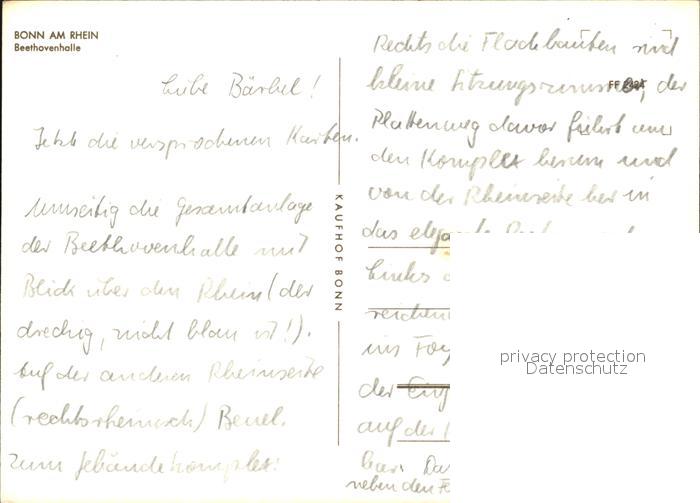 BONN AM RHEIN
Beethovenhalle
Liebe Bärbel!
Jetzt die versprochenen Karten.
Umseitig die Gesamtanlage
der Beethovenhalle mit
Blick über den Rhein (der
dreckig, nicht blau ist!).
Auf der anderen Rheinseite
(rechtsrheinisch) Beuel.
Zum Gebäudekomplex:
KAUFHOF BONN
Rechts die Flachbauten sind
kleine Sitzungsräume, der
Plattenweg davor führt um
den Komplex herum und
von der Rheinseite her in
das
Links
reichen
ins Foy
der Eing
auf der
bar. Da
neben den
privacy protection
Datenschutz